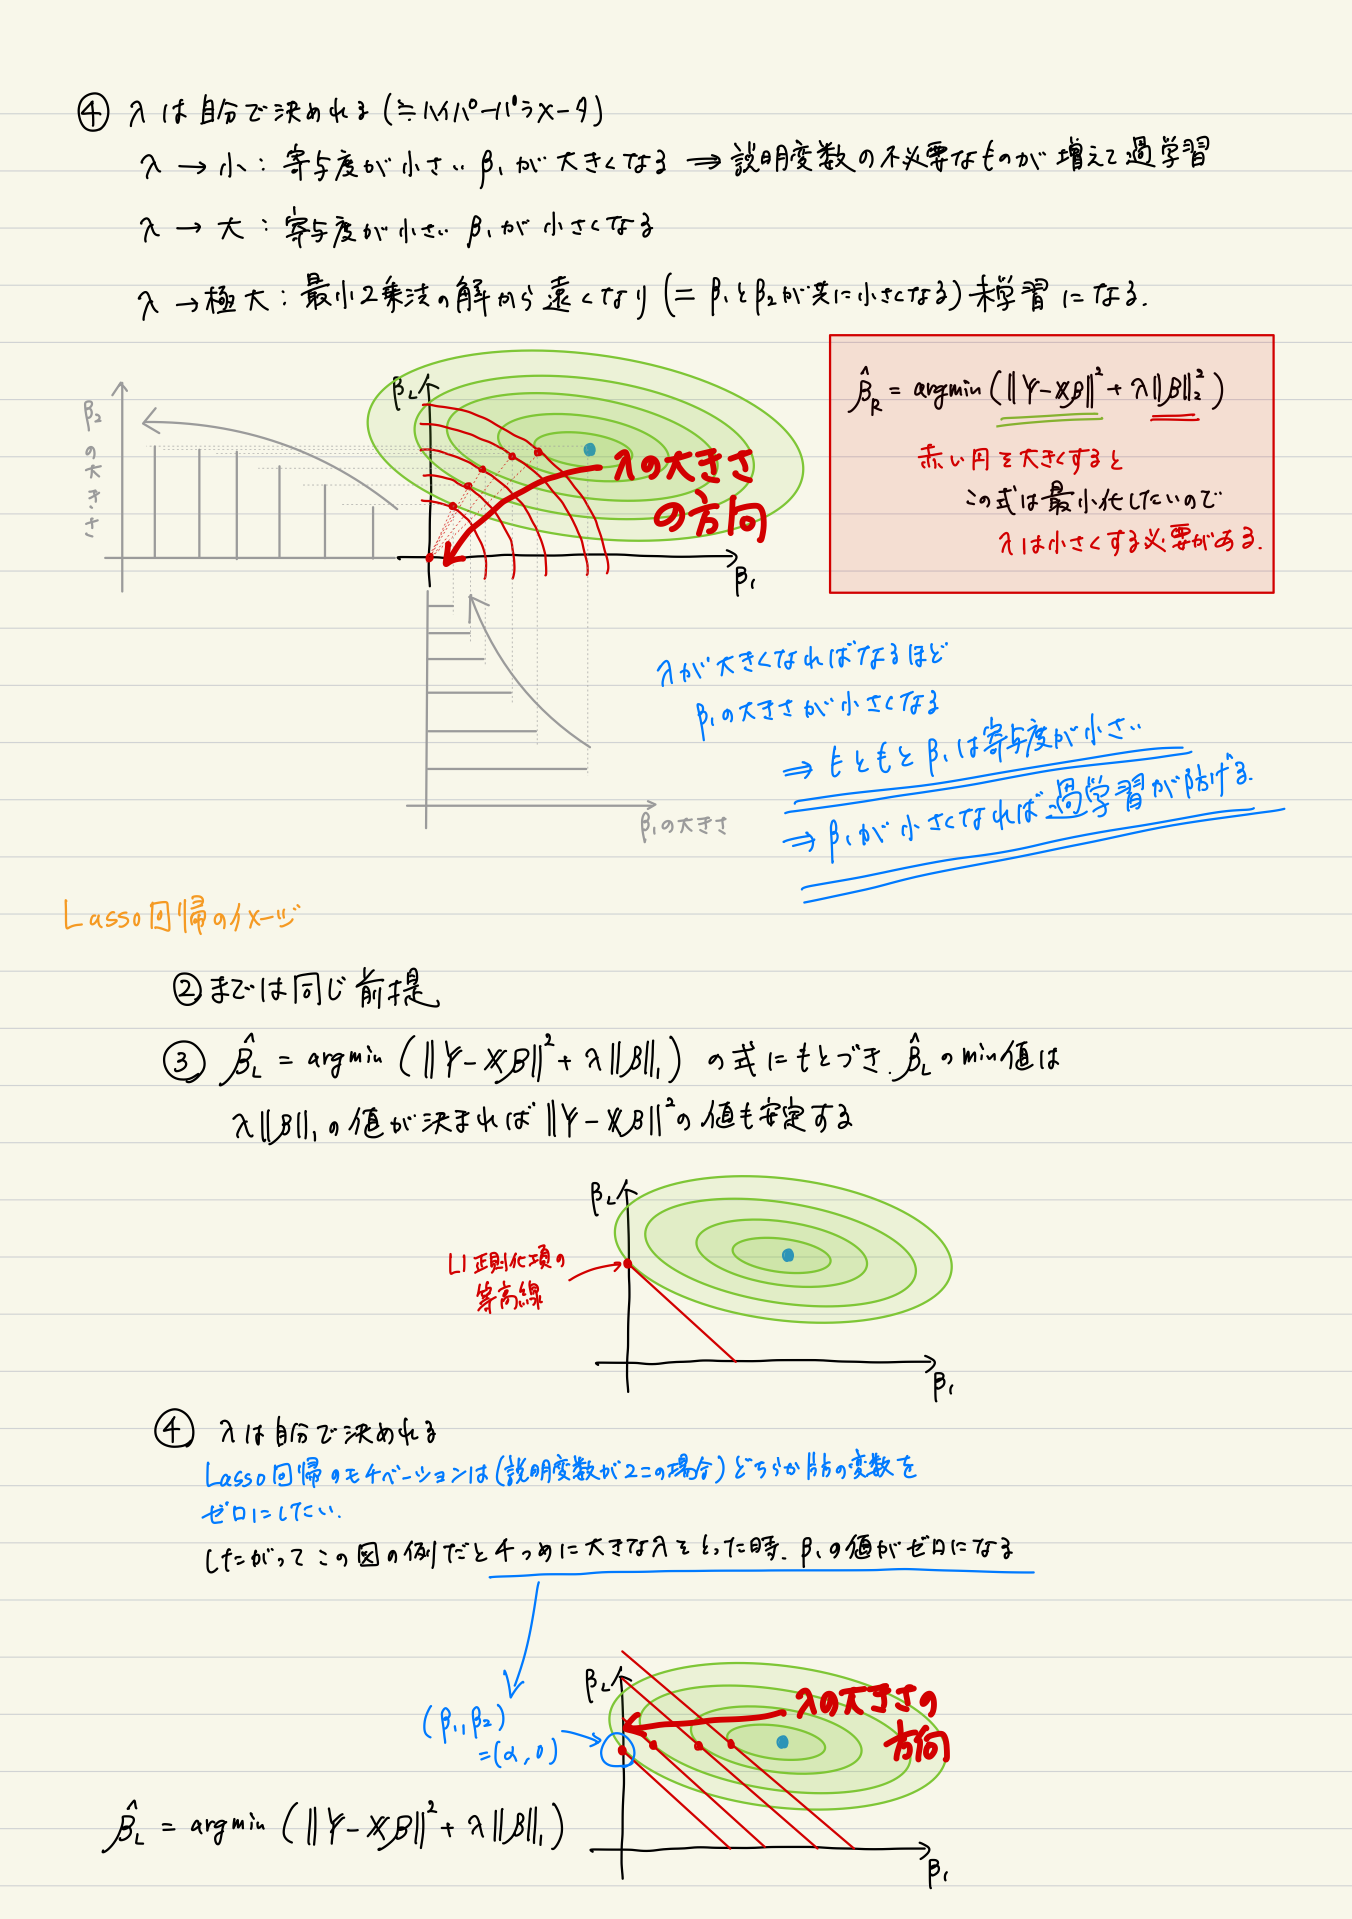 ④ λは自分で決めれる(≒ハイパーパラメータ)
λ → 小: 寄与度が小さい β₁が大きくなる ⇒ 説明変数の不必要なものが増えて過学習
λ → 大: 寄与度が小さい β₁が小さくなる
λ → 極大: 最小2乗法の解から遠くなり(= β₁とβ₂が共に小さくなる)未学習になる.
β₂
β₁
β₂の大きさ
β₁の大きさ
λの大きさ
の方向
β̂_R = argmin (‖Y-Xβ‖² + λ‖β‖₂²)
赤い円を大きくすると
この式は最小化したいので
λは小さくする必要がある.
λが大きくなればなるほど
β₁の大きさが小さくなる
⇒ もともとβ₁は寄与度が小さい
⇒ β₁が小さくなれば過学習が防げる.
Lasso回帰のイメージ
②までは同じ前提
③ β̂_L = argmin (‖Y-Xβ‖² + λ‖β‖₁) の式にもとづき、β̂_Lのmin値は
λ‖β‖₁の値が決まれば‖Y-Xβ‖²の値も安定する
β₂
L1正則化項の
等高線
β₁
④ λは自分で決めれる
Lasso回帰のモチベーションは(説明変数が2この場合)どちらか片方の変数を
ゼロにしたい.
したがってこの図の例だと4つめに大きなλをとった時、β₁の値がゼロになる
β₂
λの大きさの
方向
(β₁,β₂)
=(α,0)
β₁
β̂_L = argmin (‖Y-Xβ‖² + λ‖β‖₁)